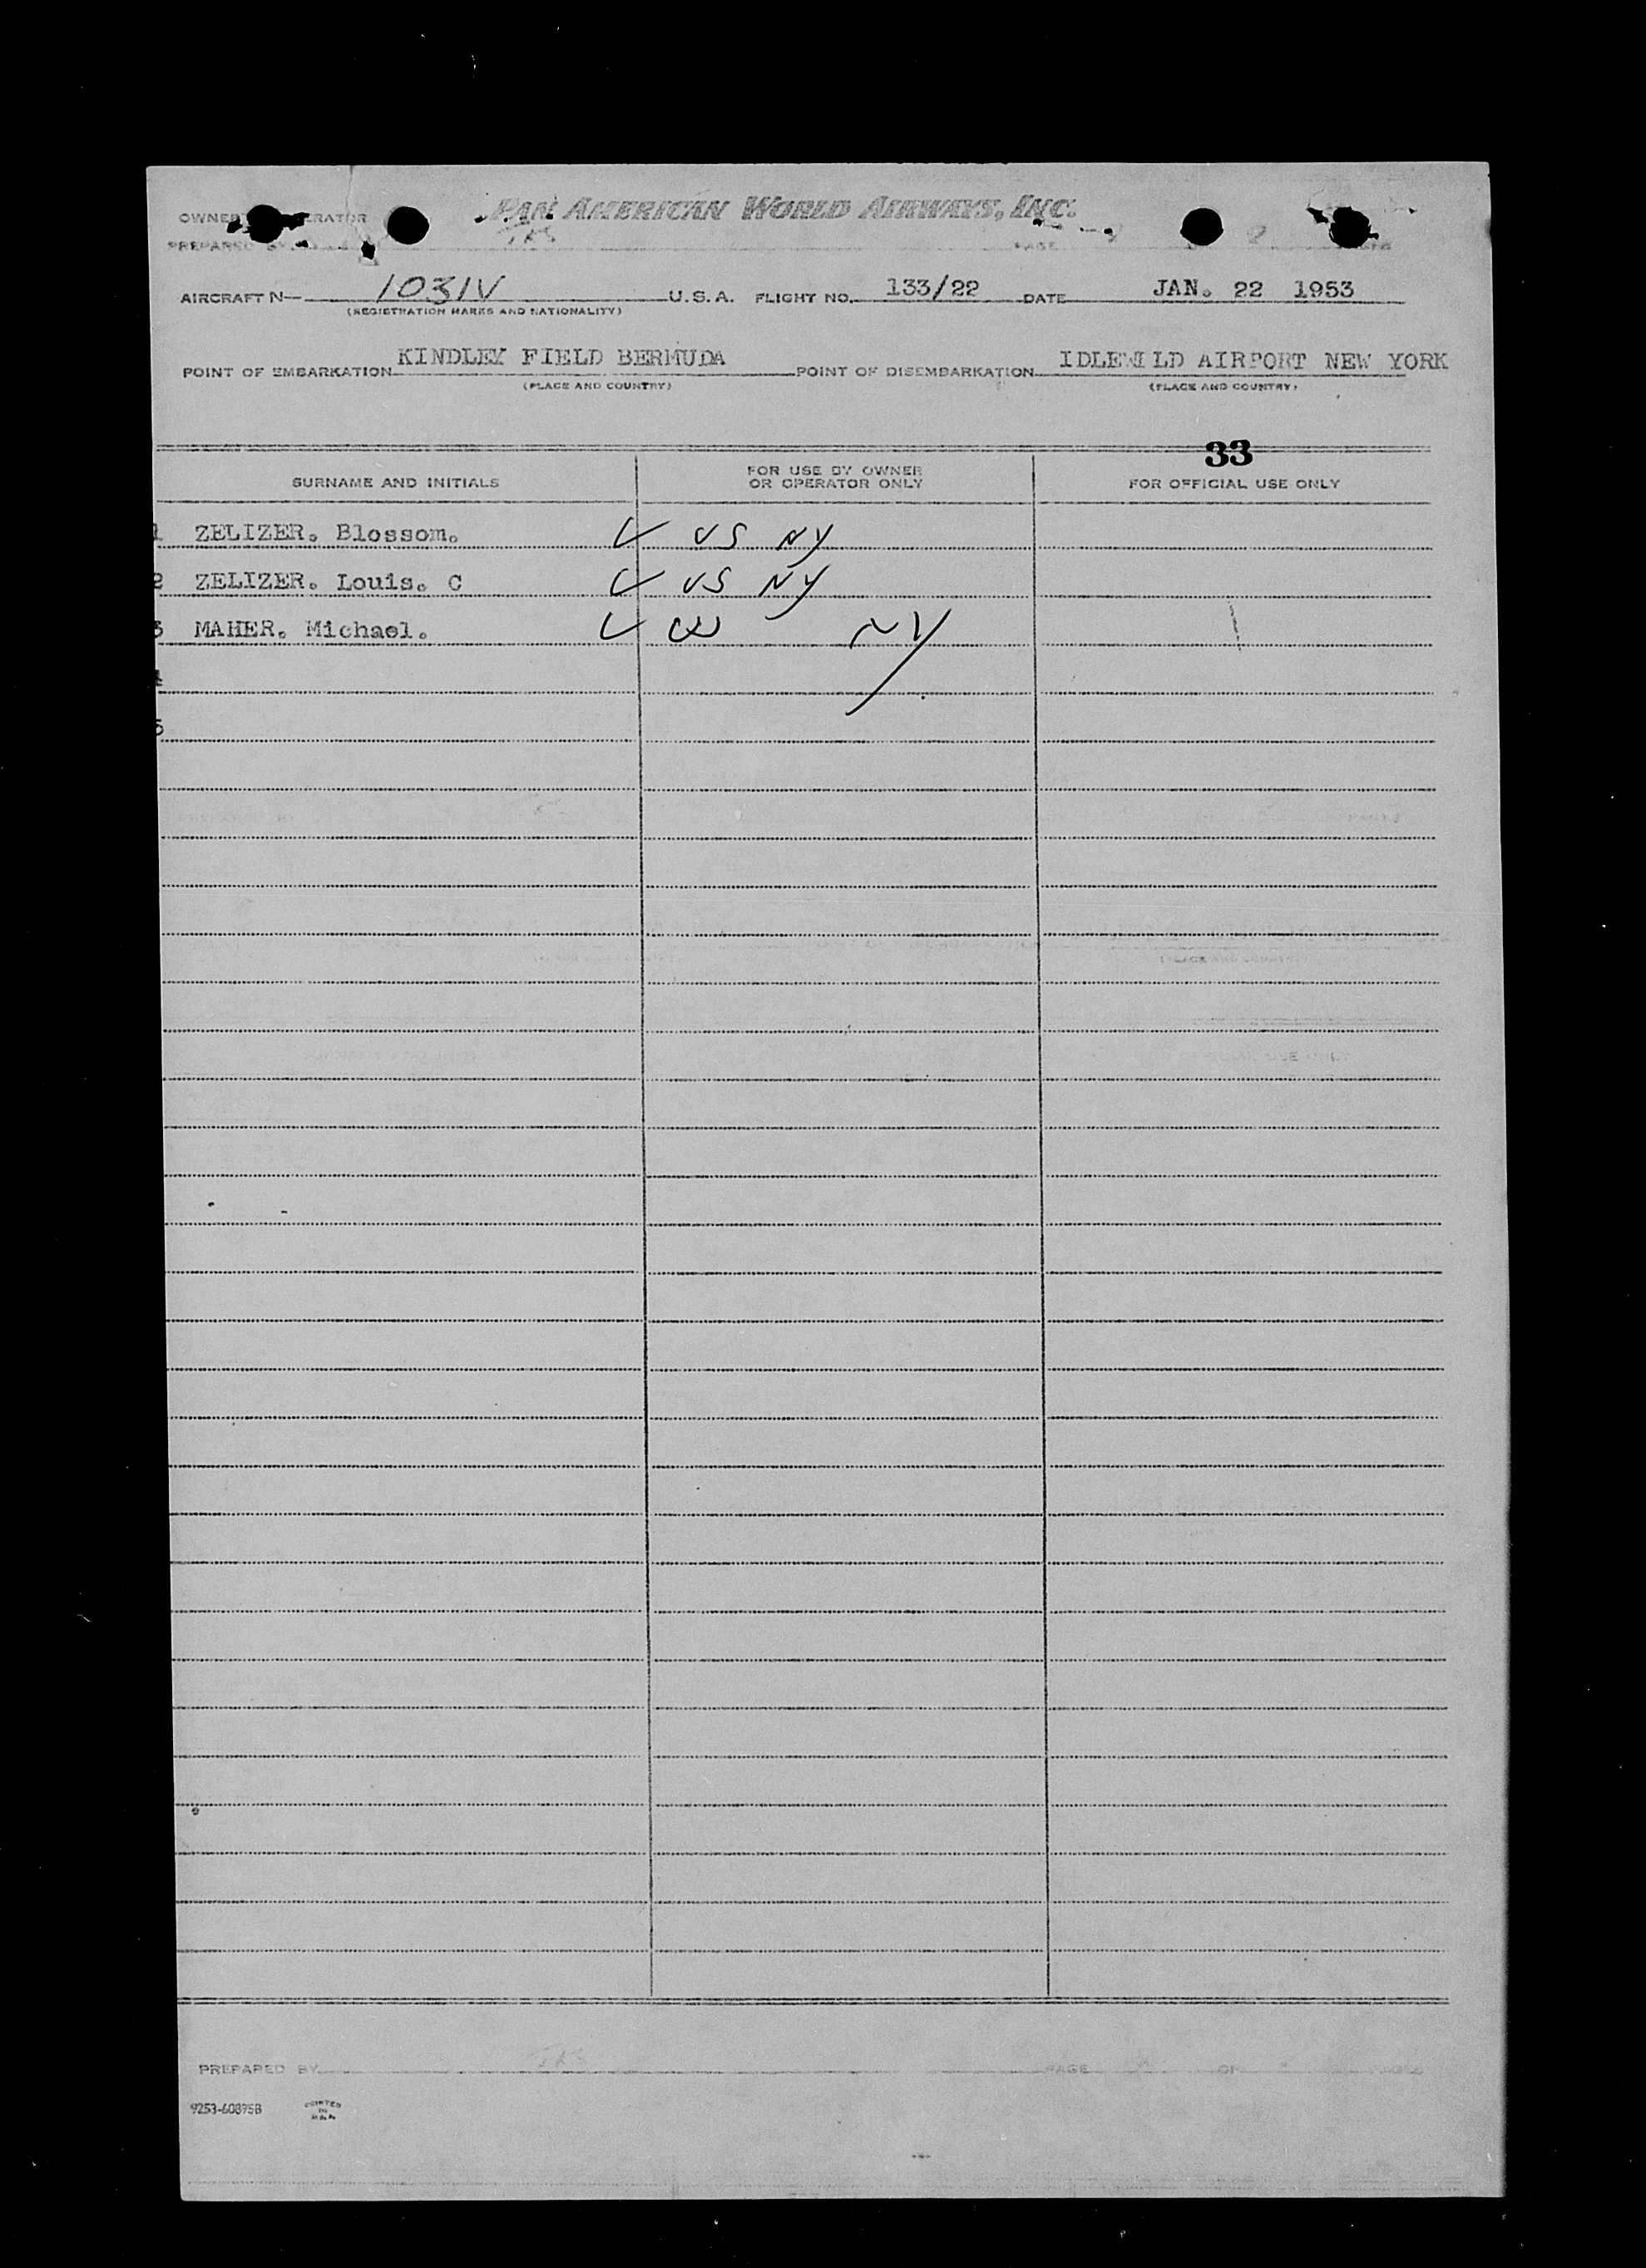 OWNER OPERATOR PAN AMERICAN WORLD AIRWAYS, INC.
PREPARED BY PAGE
AIRCRAFT N— 1031V U.S.A. FLIGHT NO. 133/22 DATE JAN. 22 1953
(REGISTRATION MARKS AND NATIONALITY)
POINT OF EMBARKATION KINDLEY FIELD BERMUDA POINT OF DISEMBARKATION IDLEWILD AIRPORT NEW YORK
(PLACE AND COUNTRY) (PLACE AND COUNTRY)
33
SURNAME AND INITIALS FOR USE BY OWNER OR OPERATOR ONLY FOR OFFICIAL USE ONLY
1 ZELIZER. Blossom. US NY
2 ZELIZER. Louis. C US NY
3 MAHER. Michael. NY
4
5
PREPARED BY PAGE OF
9253-60895B PRINTED IN U.S.A.